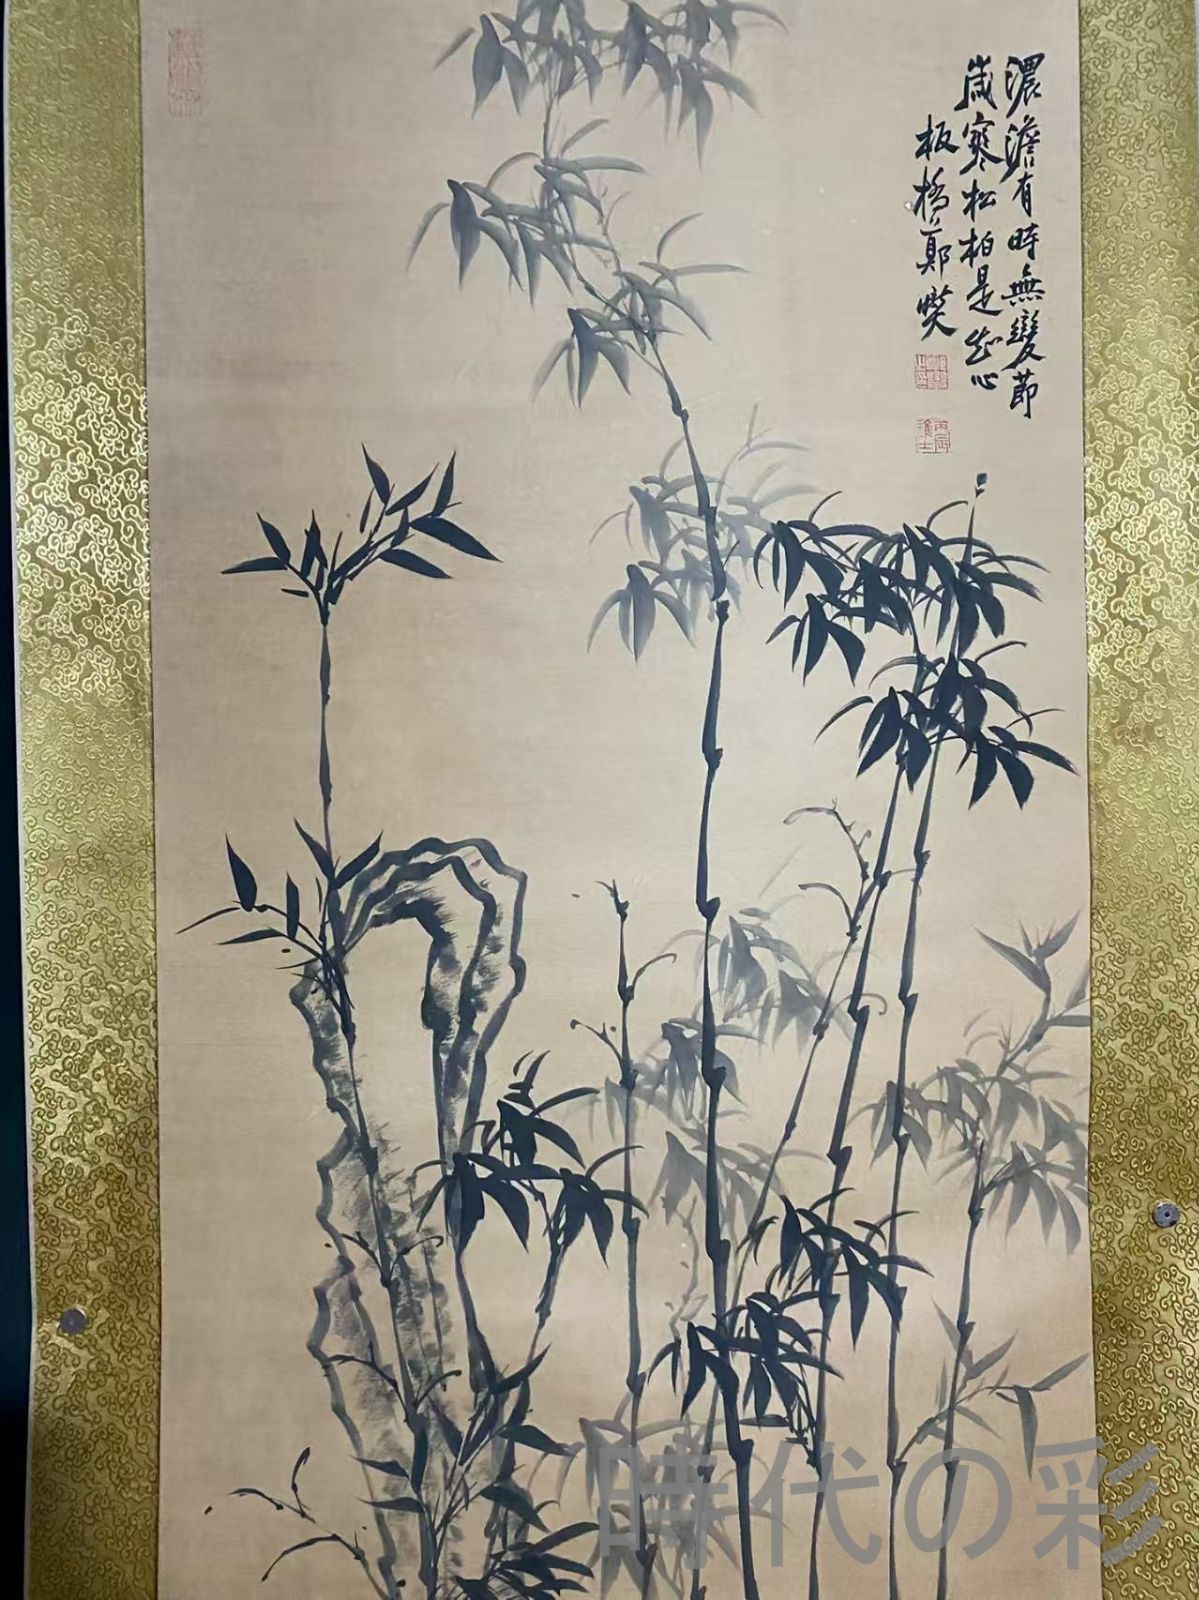 濃澹有時無變節
歲寒松柏是知心
板橋鄭燮
丙辰進士
時代の彩